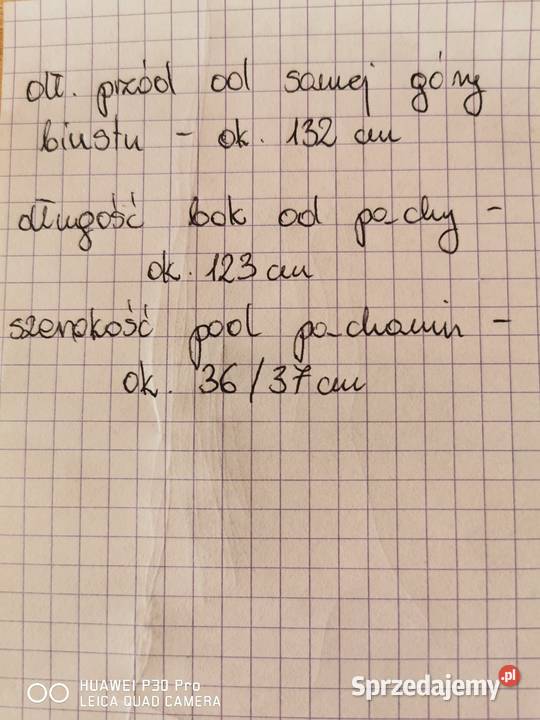 dł. przód od samej góry
biustu - ok. 132 cm
długość bok od pachy -
ok. 123 cm
szerokość pod pachami -
ok. 36/37 cm
HUAWEI P30 Pro
LEICA QUAD CAMERA
Sprzedajemy.pl